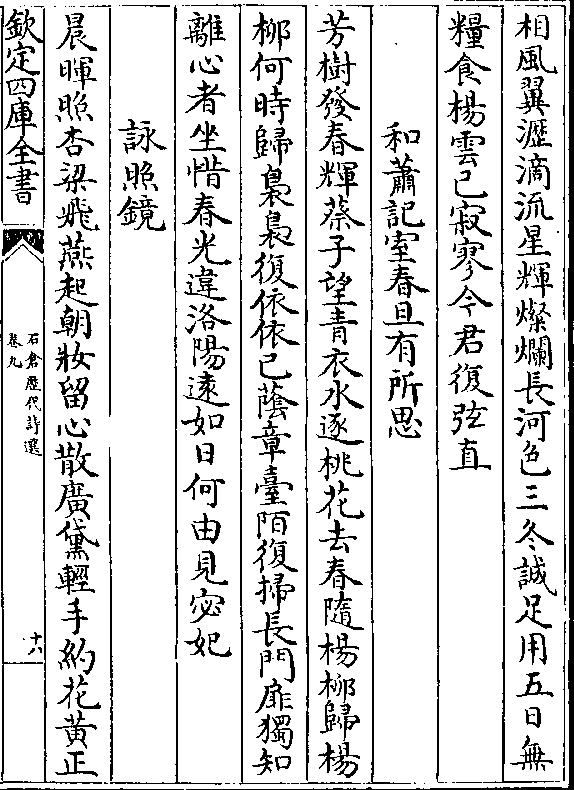 相風翼瀝滴流星輝燦爛長河色三冬誠足用五日無
糧食楊雲已寂寥今君復弦直
和蕭記室春旦有所思
芳樹發春輝蔡子望青衣水逐桃花去春隨楊柳歸楊
柳何時歸裊裊復依依已蔭章臺陌復掃長門扉獨知
離心者坐惜春光違洛陽遠如日何由見宓妃
詠照鏡
晨暉照杏梁飛燕起朝妝留心散廣黛輕手約花黃正
欽定四庫全書
石倉歷代詩選
卷九
十八